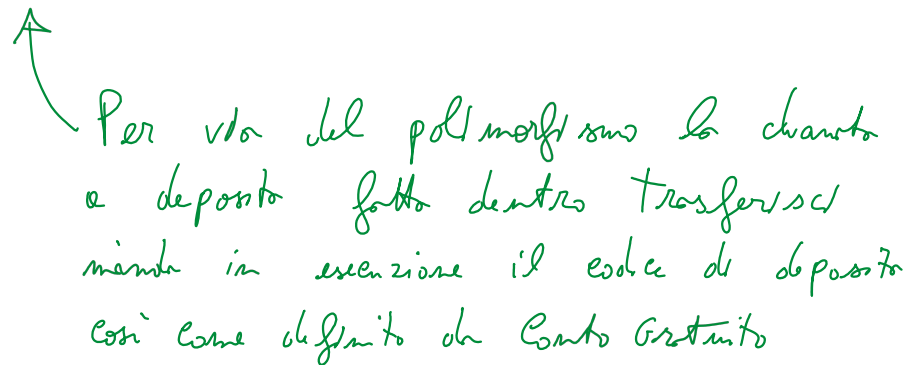 Per via del polimorfismo la chiamata
a deposita fatta dentro trasferisci
manda in esecuzione il codice di deposita
così come definito da Conto Gratuito